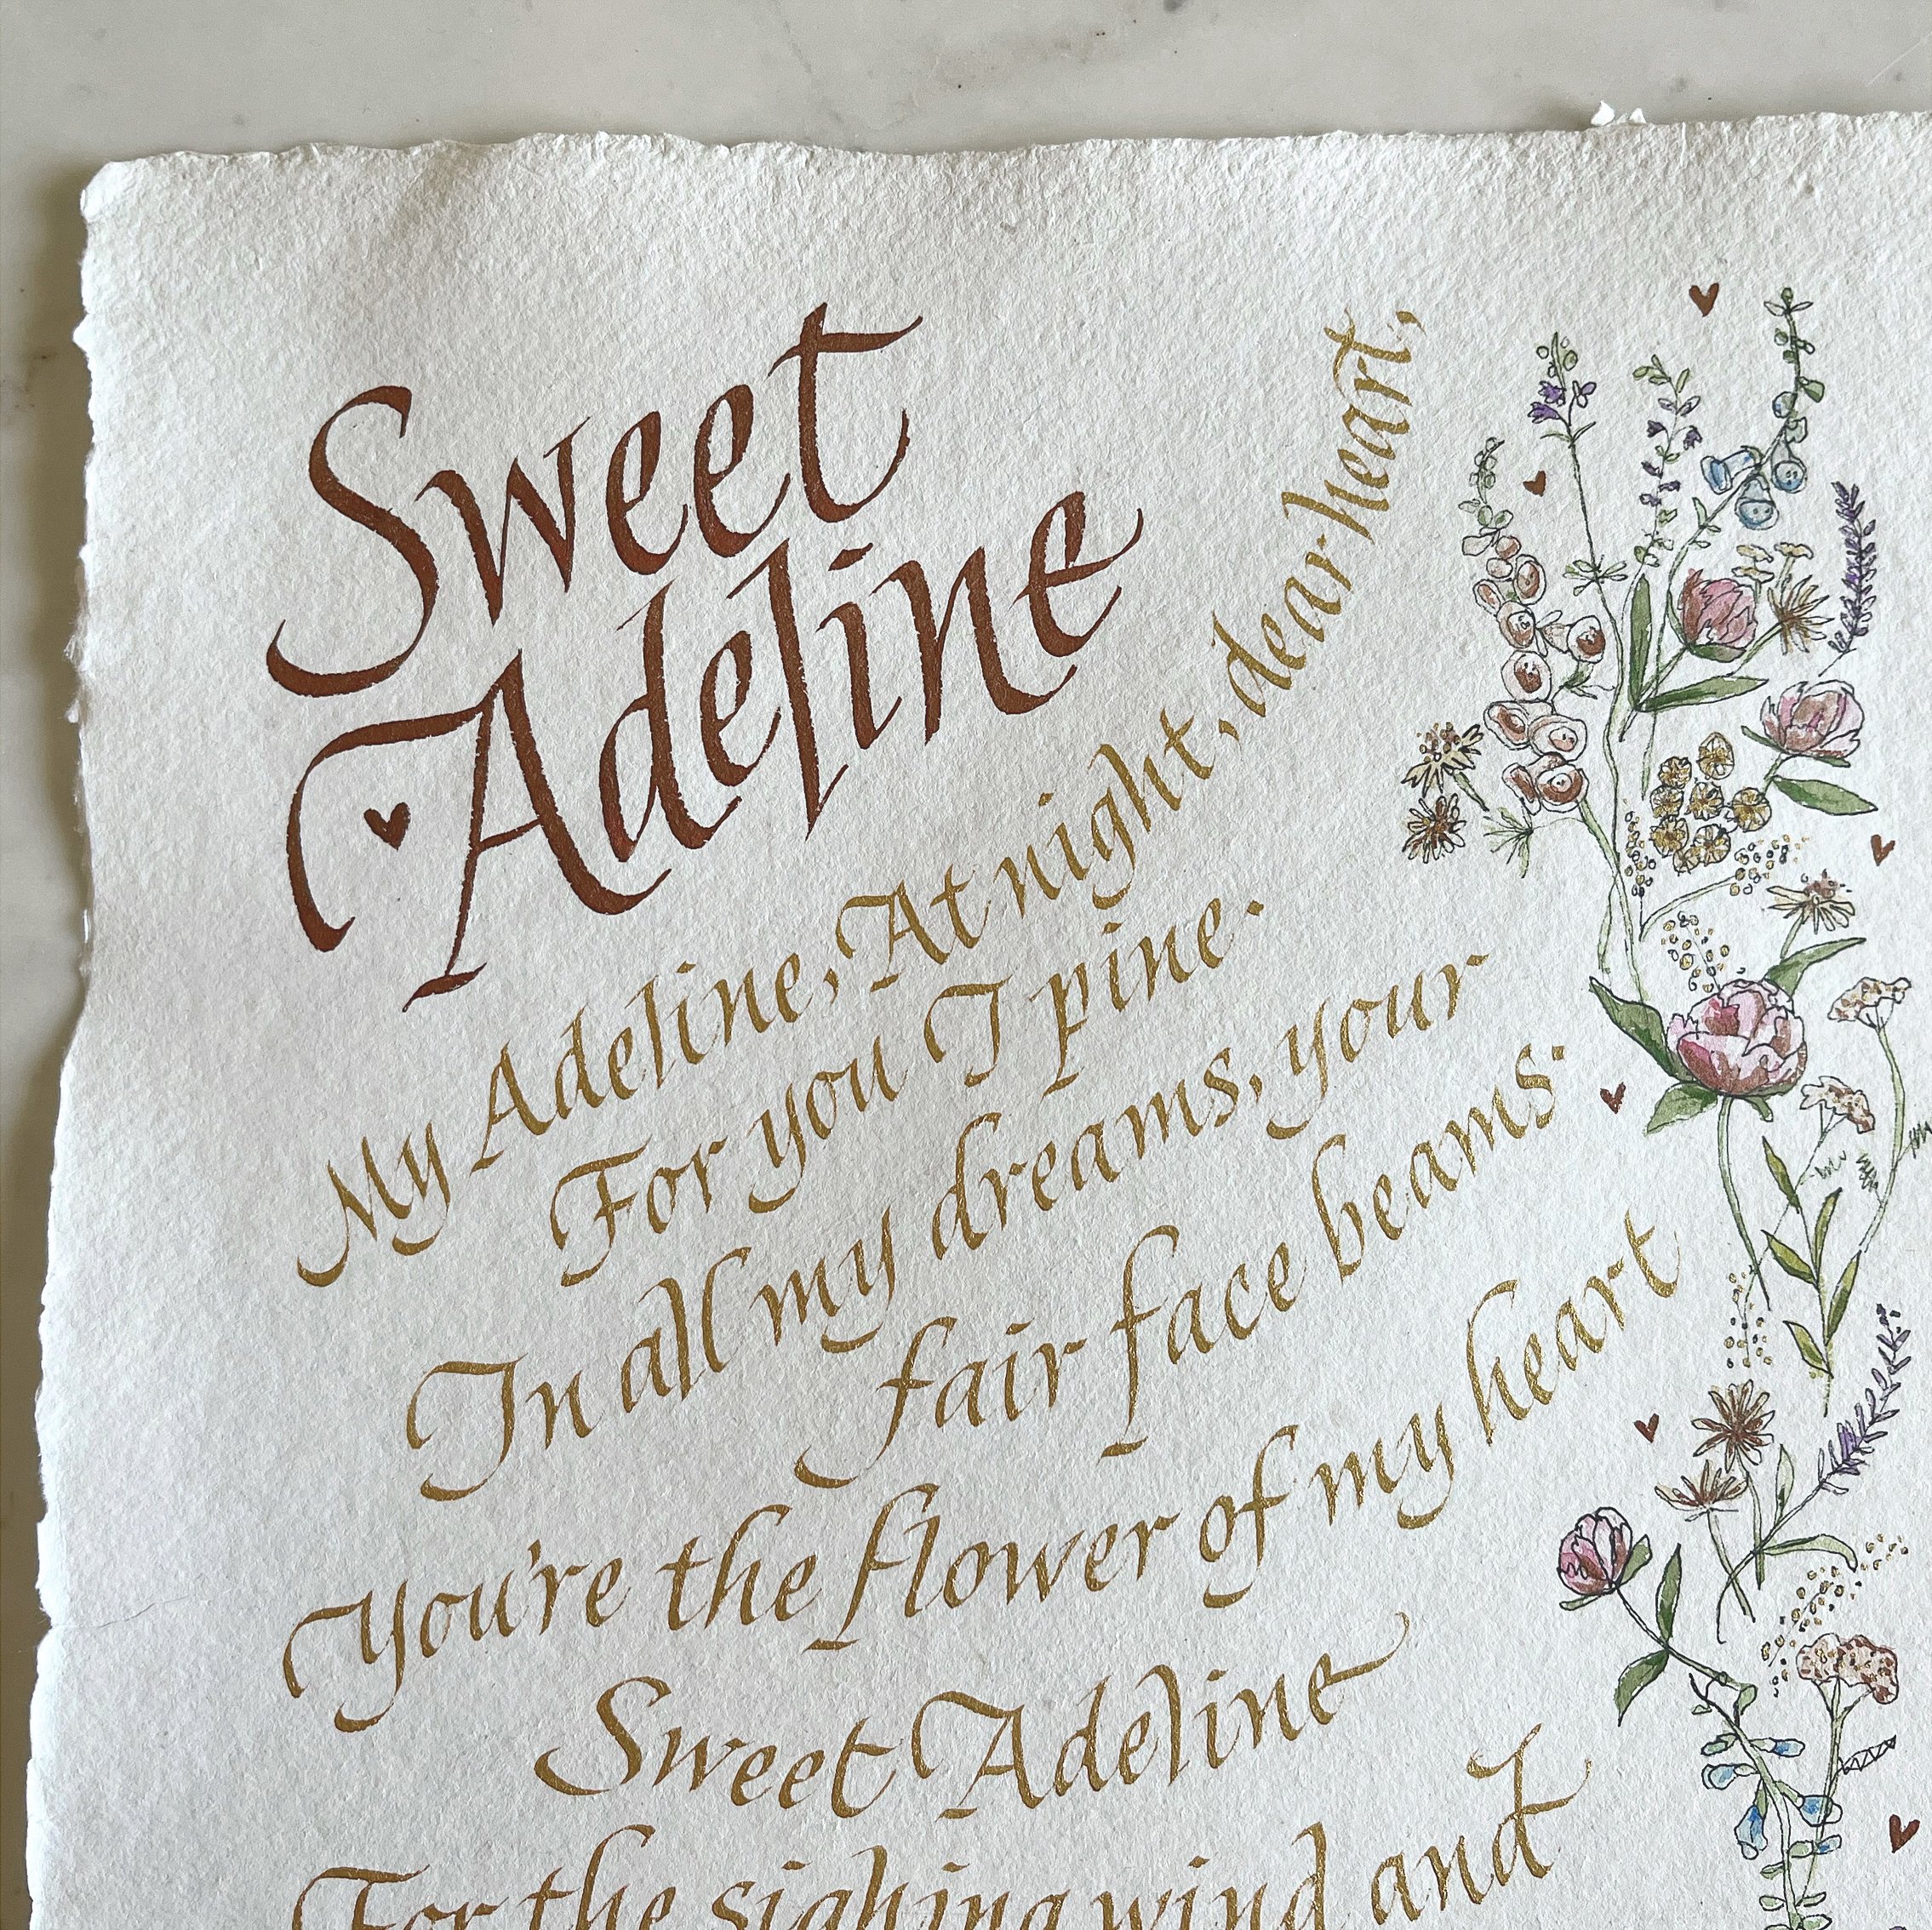 Sweet
Adeline
My Adeline, At night, dear heart,
For you I pine.
In all my dreams, your
fair face beams.
You're the flower of my heart
Sweet Adeline
For the sighing wind and